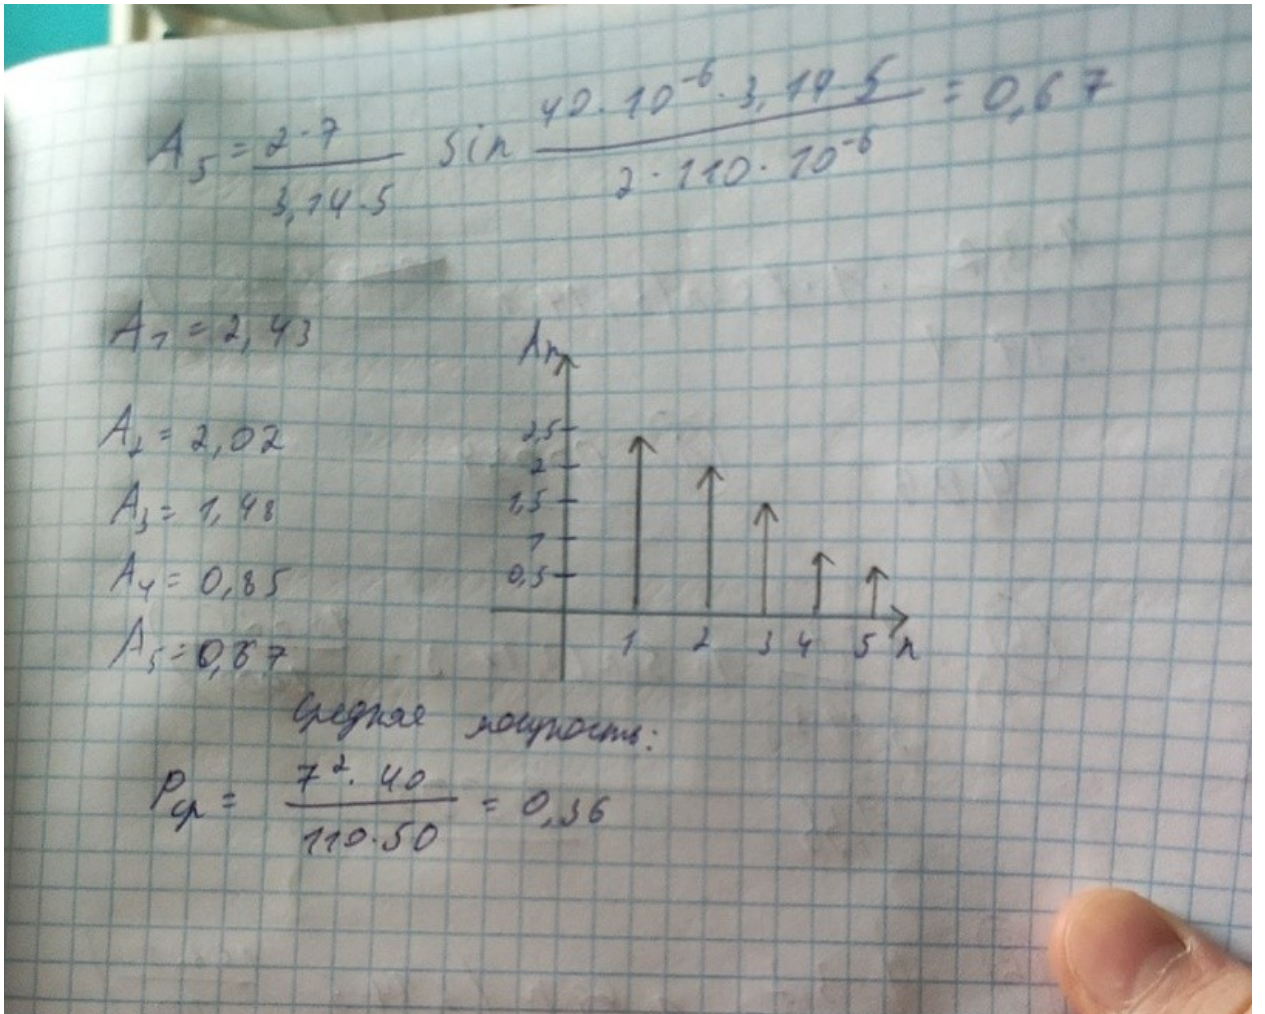 A₅ = 2·7 / 3,14·5 sin 40·10⁻⁶·3,14·5 / 2·110·10⁻⁶ = 0,67
A₁ = 2,43
A₂ = 2,02
A₃ = 1,48
A₄ = 0,85
A₅ = 0,67
Aₙ
2,5
2
1,5
1
0,5
1 2 3 4 5 n
Средняя мощность:
Pср = 7²·40 / 110·50 = 0,36